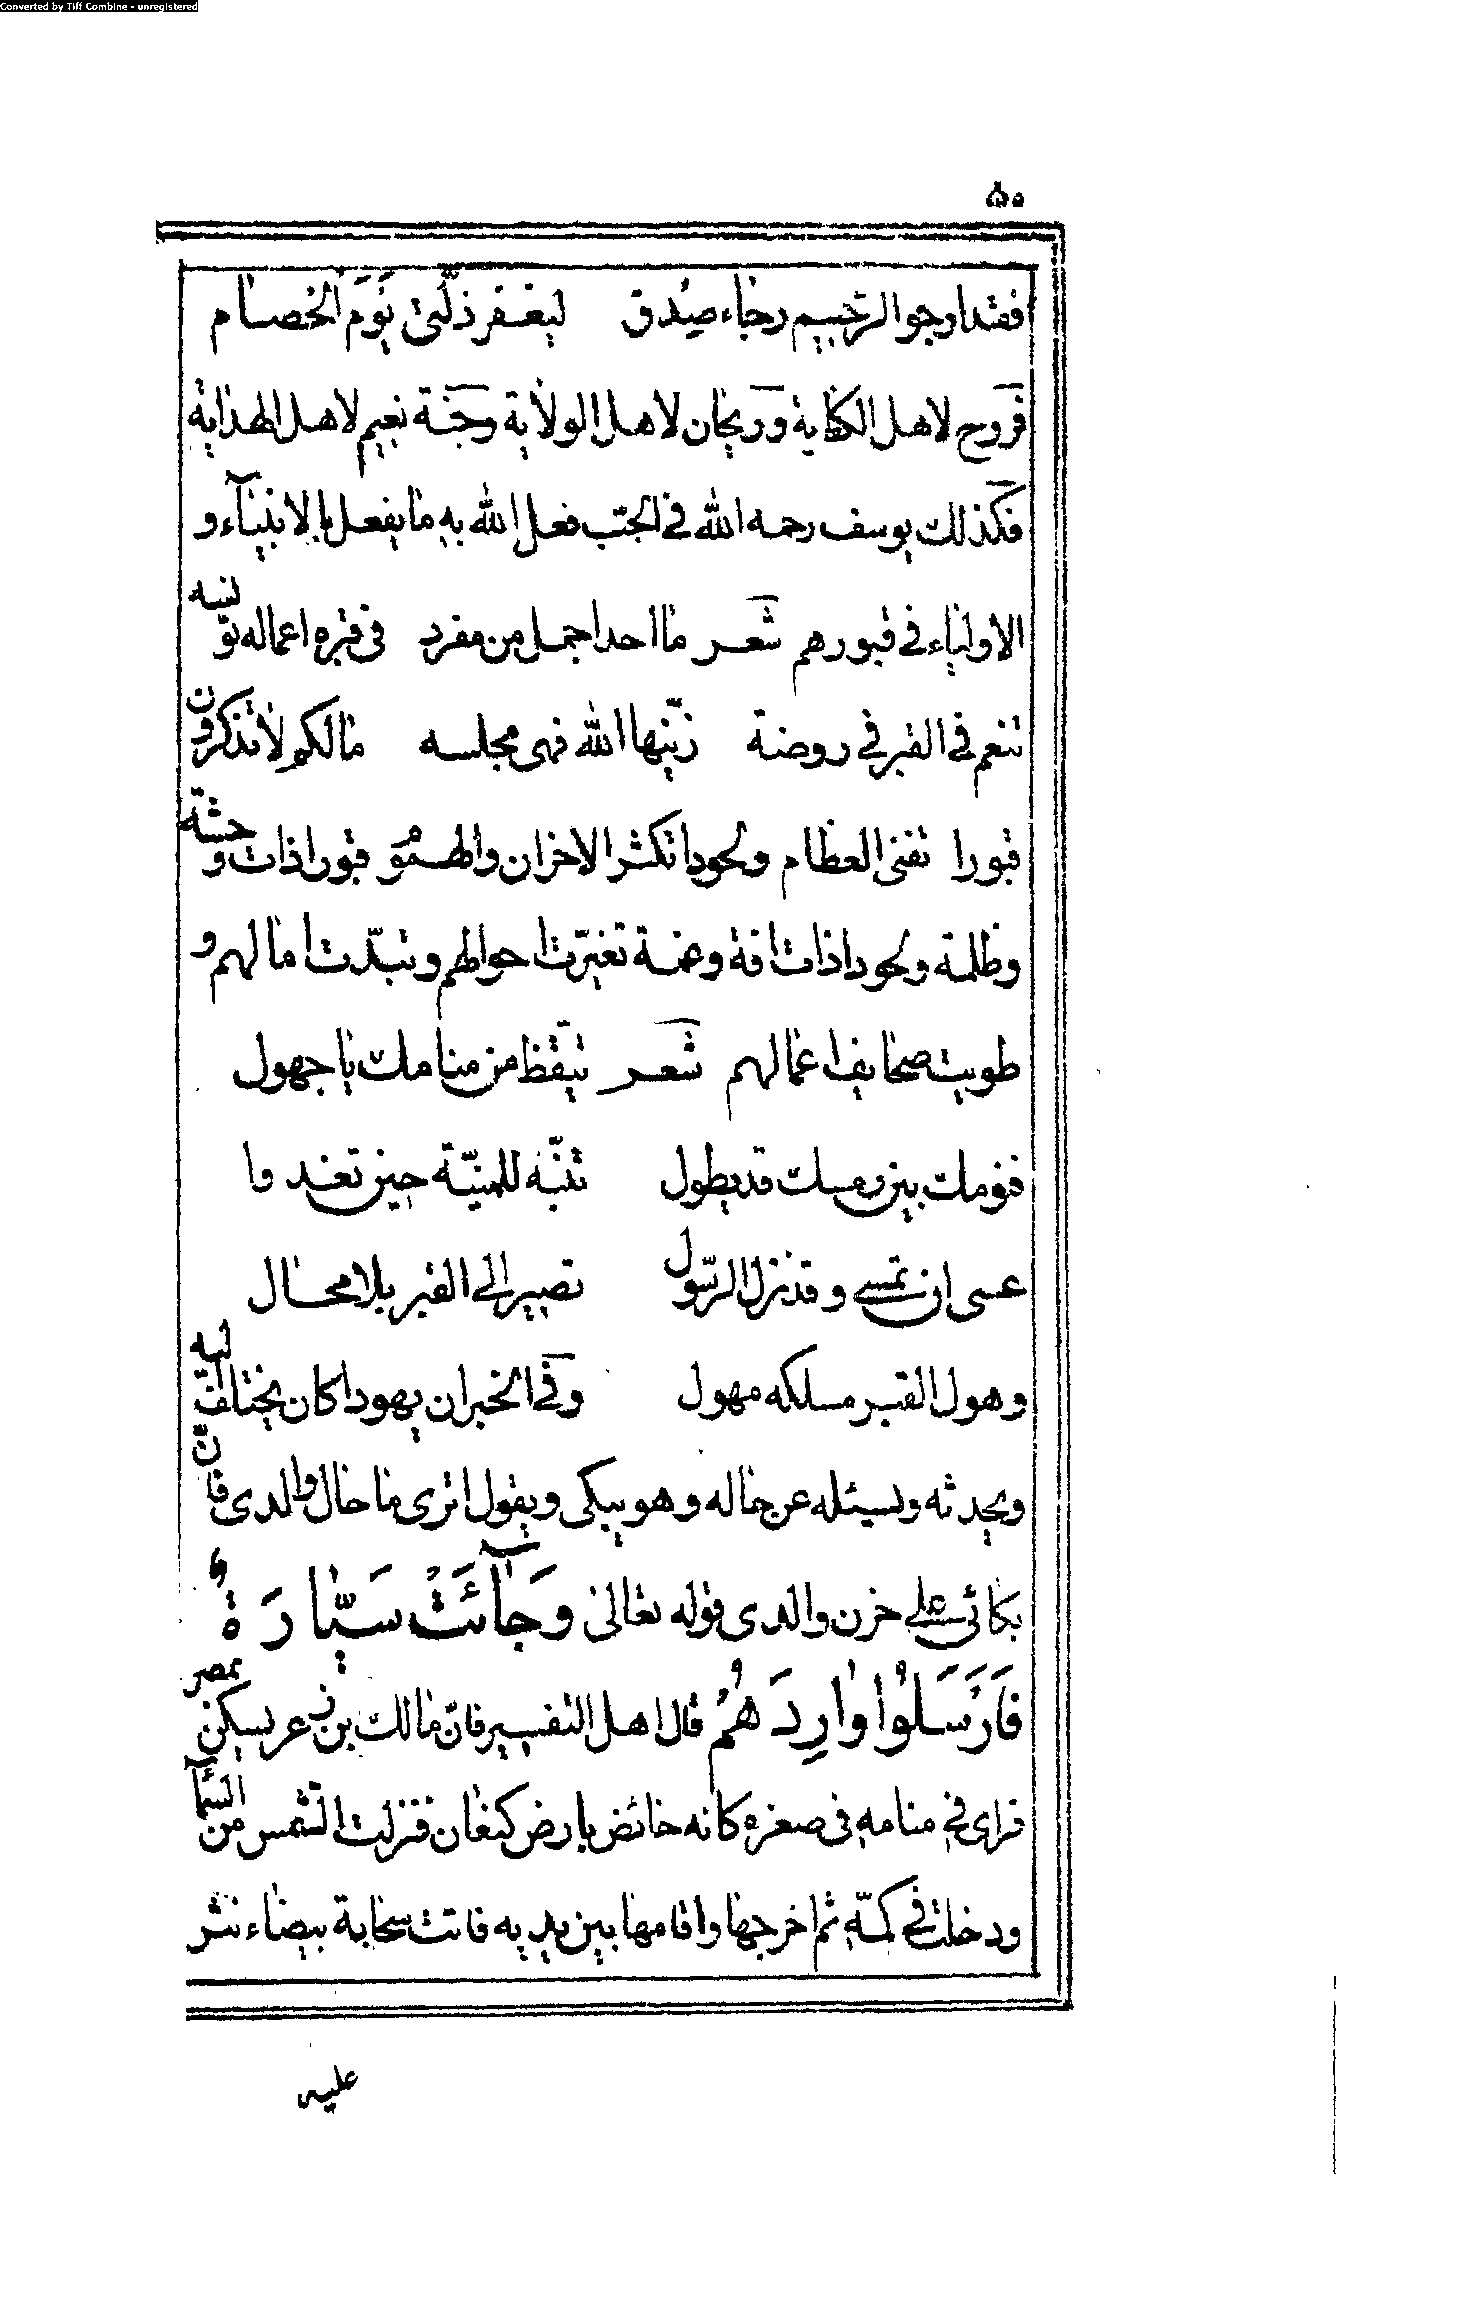 Converted by Tiff Combine - unregistered
۵۰
فقدارجوالرّحيم رجاء صدق ليغفر ذلّتى يَوَم الخصام
فَروح لاهل الكفاية وَريحان لاهل الولاية وَجنة نعيم لاهل الهداية
فكَذلك يوسف رحمه الله فى الجبّ فعل الله به ما يفعل بالانبيآء و
الاولياء فى قبورهم شعر ما احد اجمل من مفرد فى قبره اعماله تونسه
تنعم فى القبر فى روضة زيّنها الله فهى مجلسه مالكم لا تذكرون
قبورا تفنى العظام ولحودا تكثر الاحزان والهموم قبورا ذات وحشة
وظلمة ولحودا ذات افة وغمة تغيّرت احوالهم وتبدّدت امالهم و
طويت صحايف اعمالهم شعر تيقّظ من منامك يا جهول
فنومك بين رمسك قد يطول تنبّه للمنيّة حين تغدوا
عسى ان تمسى وقد نزل الرّسول تصير الى القبر بلا محال
وهول القبر مسلكه مهول وَفى الخبر ان يهودا كان يختلف اليه
ويحدثه ويسئله عن حاله وهو يبكى ويقول اترى ما حال والدى فانّ
بكائى على حزن والدى قوله تعالى وَجَآئَتْ سَيّارَةٌ
فَاَرْسَلُوا وارِدَهُمْ قال اهل التفسير فانّ مالك بن ذعر يسكن بمصر
فراى فى منامه فى صغره كانه خائض بارض كنعان فنزلت الشّمس من السّمآء
ودخلت فى كمّه ثم اخرجها واقامها بين يديه فاتت سحابة بيضاء تنثر
عليه